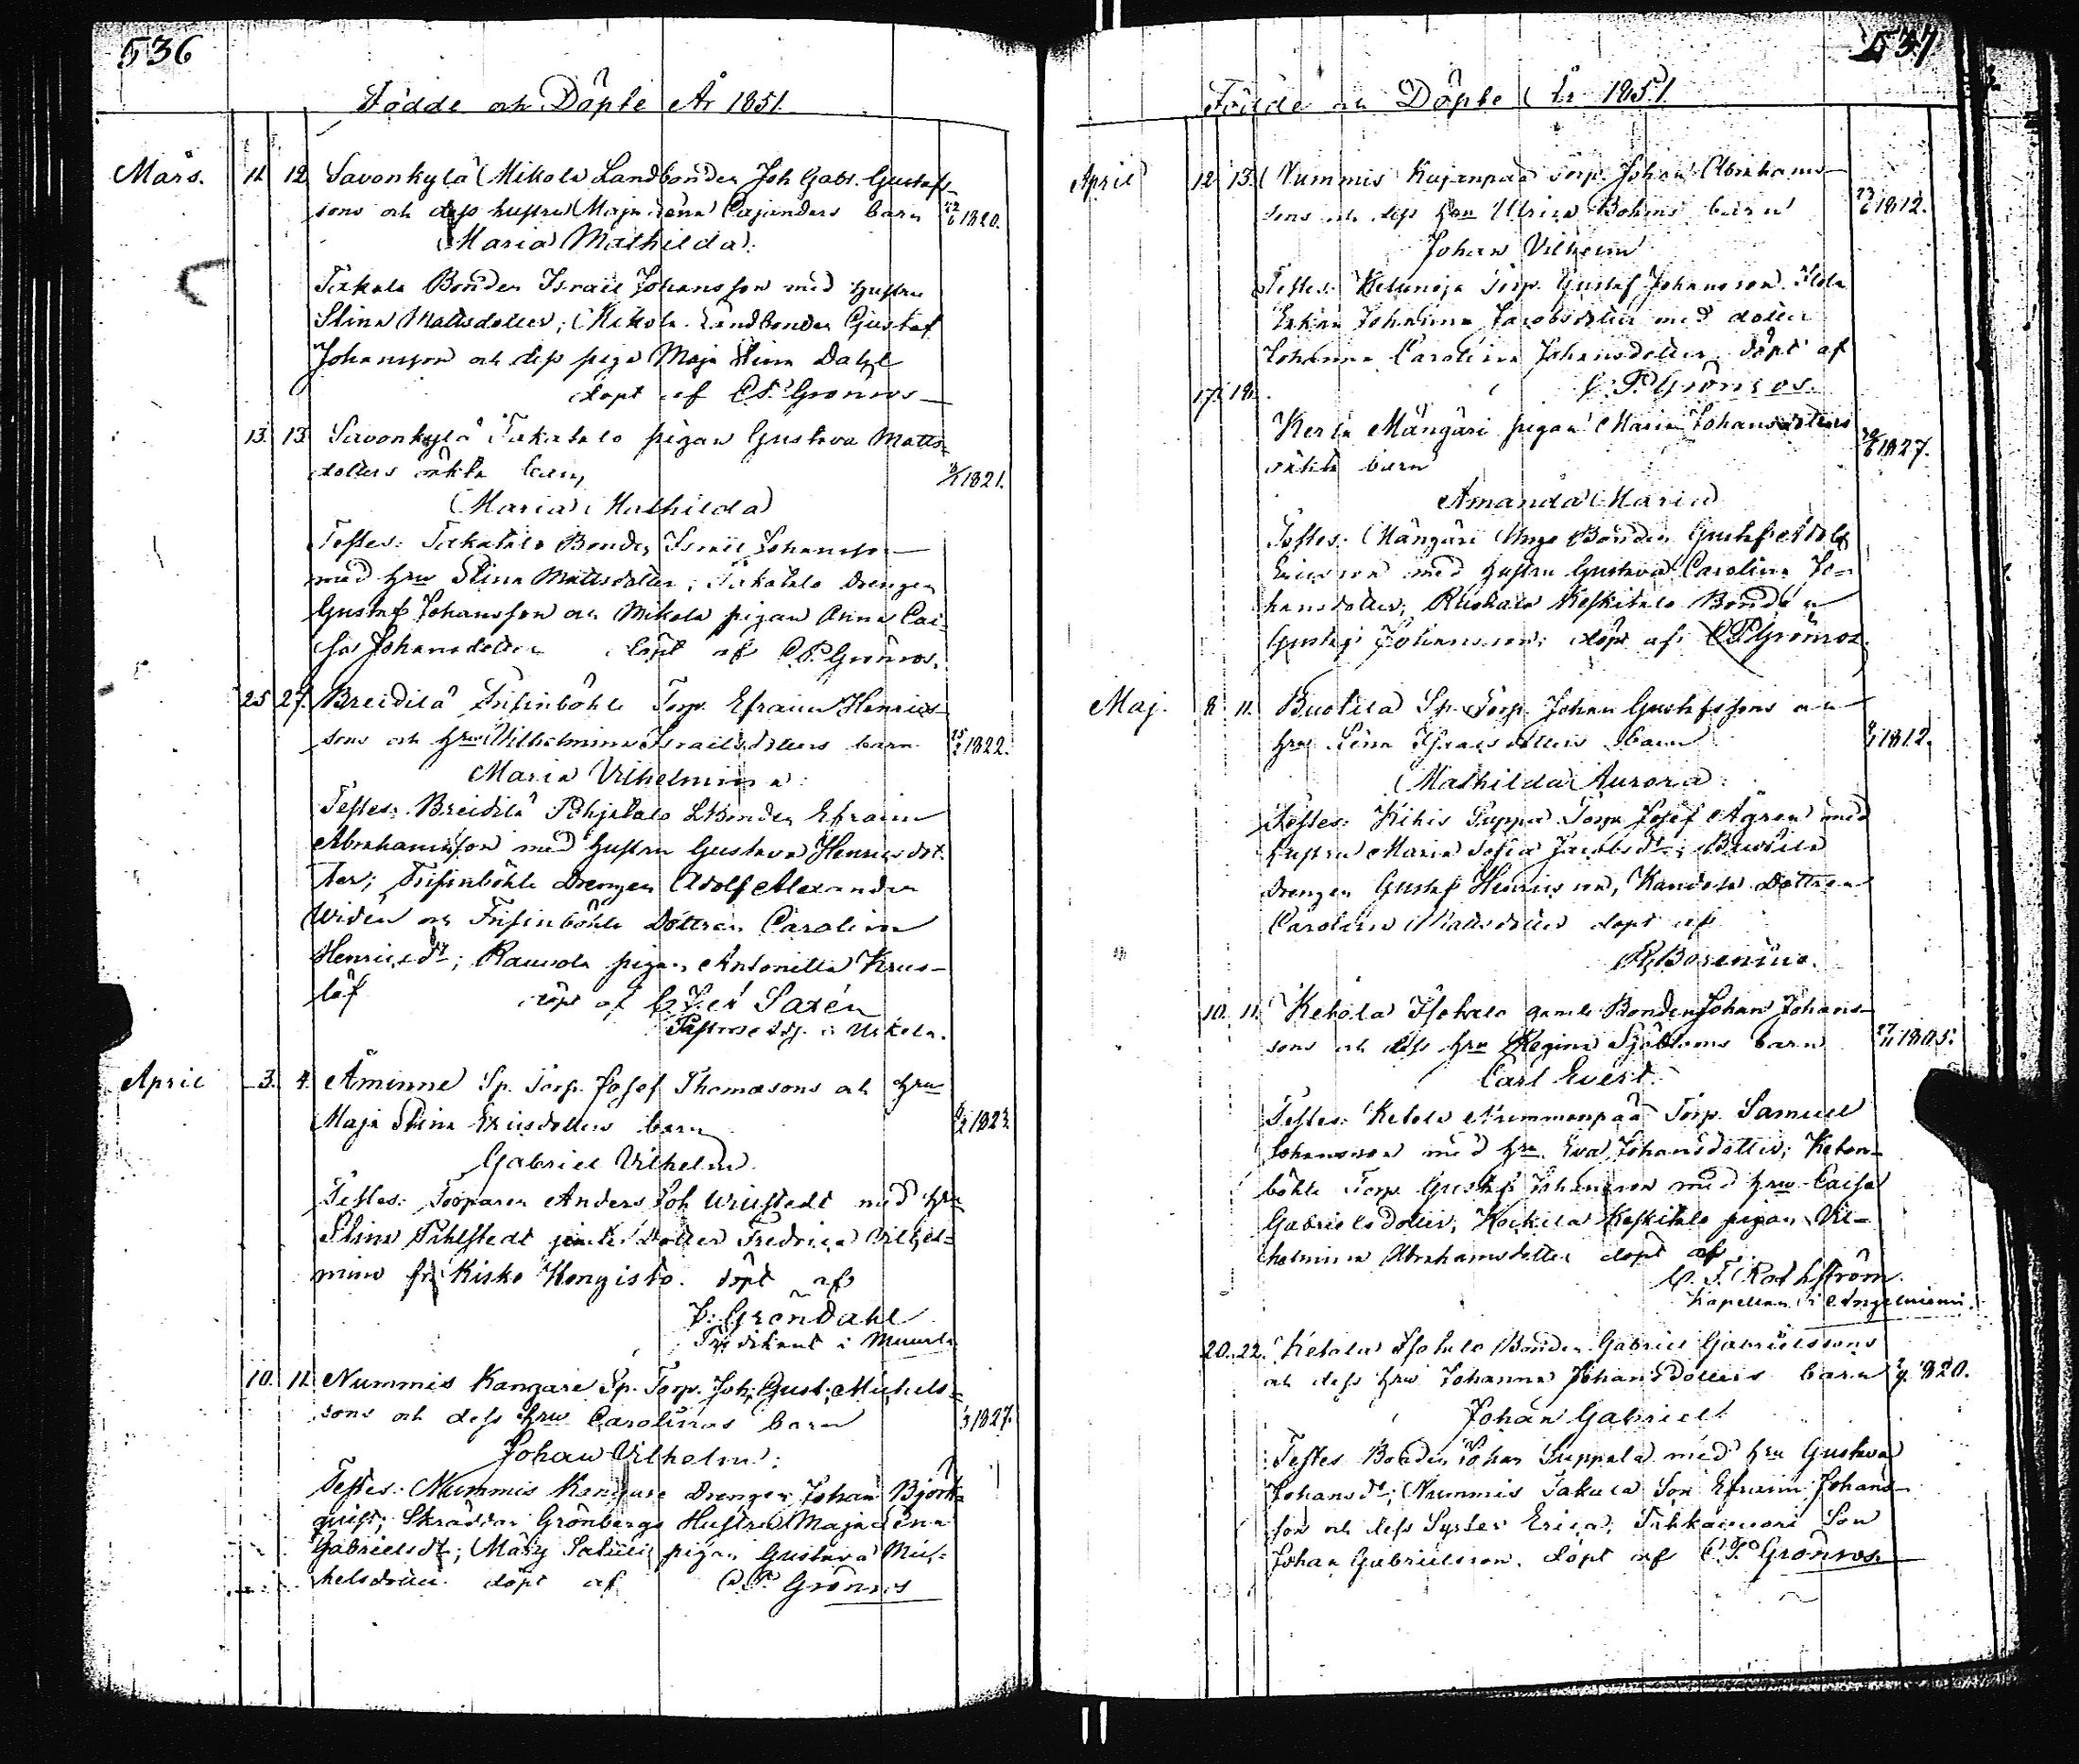 536
Födde och Döpte År 1851.
Mars. 11. 12. Savonkylä Mikola Landbonden Joh. Gabr. Gustafs-
sons och dess hustru Maja Lena Cajanders barn 1820.
Maria Mathilda.
Takala Bonden Israel Johansson med hustru
Stina Mattsdotter; Mikola Landbonden Gustaf
Johansson och dess piga Maja Stina Dahl
döpt af C. P. Grönros
13. 13. Savonkylä Takatalo pigan Gustava Matts-
dotters oäkta barn, 1821.
Maria Mathilda
Testes: Takatalo Bonden Israel Johansson
med hru Stina Mattsdotter; Takatalo Drengen
Gustaf Johansson och Mikola pigan Anna Cai-
sa Johansdotter döpt af C. P. Grönros.
25. 27. Breidilä Frisinböhle Torp. Efraim Henrics-
sons och hru Vilhelmina Israelsdotters barn 1822.
Maria Vilhelmina.
Testes: Breidilä Pohjatalo LBonden Efraim
Abrahamsson med hustru Gustava Henricsdot-
ter; Frisinböhle Drengen Adolf Alexander
Widen och Frisinböhle Dottren Carolina
Henricsdr; Rauvola pigan Antonetta Krus-
löf döpt af C. J. Saxén
Pastors Adj. i Uskela.
April 3. 4. Åminne Sp. Torp. Josef Thomæsons och hru
Maja Stina Ericsdotters barn 1823.
Gabriel Vilhelm.
Testes: Torparen Anders Joh. med hru
Stina Pihlstedt jemte dotter Fredrica Vilhel-
mina frå Kisko Kongisto. döpt af
Gröndahl
Predikant i Muurla
10. 11. Nummis Kangare Sp. Torp. Joh. Gust. Michels-
sons och dess hru Carolinas barn 1827.
Johan Vilhelm:
Testes: Nummis Kangare Drengen Johan Björk-
qvist; Skräddar Grönbergs Hustru Maja Lena
Gabrielsdr; Märy pigan Gustava Mic-
helsdotter. döpt af C. P. Grönros
537
Födde och Döpte År 1851.
April 12. 13. Nummis Kajanpää Torp. Johan Abrahams-
sons och dess hru Ulrica Bohms barn 1812.
Johan Vilhelm
Testes: Ketunoja Torp. Gustaf Johansson.
Enkan Johanna Jacobsdotter med dotter
Johanna Carolina Johansdotter döpt af
C. P. Grönros.
17. 18.
Kerla Mängäri pigan Maria Johansdotters
oäkta barn 1827.
Amanda Maria
Testes: Mängäri Unge Bonden Gustaf Adolf
Ericsson med hustru Gustava Carolina Jo-
hansdotter; Keskitalo Bonden
Gustaf Johansson; döpt af C. P. Grönros.
Maj. 8. 11. Buotila Sp. Torp. Johan Gustafssons och
hru Lena Isacsdotters barn 1812.
Mathilda Aurora.
Testes: Kikis Torp. Josef Ågren med
hustru Maria Sofia Jacobsdr; Buotila
Drengen Gustaf Henricsson, Dottren
Carolina Mattsdotter döpt af
Borenius.
10. 11. Ketola Isotalo gamle Bonden Johan Johans-
sons och dess hru Regina Sjöbloms barn 1805.
Carl Evert.
Testes: Ketola Nummenpää Torp. Samuel
Johansson med hru Eva Johansdotter; Keton-
böhle Torp. Gustaf Johansson med hru Caisa
Gabrielsdotter; Keskitalo pigan Vil-
helmina Abrahamsdotter döpt af
C. F. Rothström.
Kapellan i Angelniemi.
20. 22. Ketola Isotalo Bonden Gabriel Gabrielssons
och dess hru Johanna Johansdotters barn 1820.
Johan Gabriel.
Testes Bonden Johan Suppala med hru Gustava
Johansdr; Nummis Takala Son Efraim Johans-
son och dess Syster Erica; Son
Johan Gabrielsson. döpt af C. P. Grönros